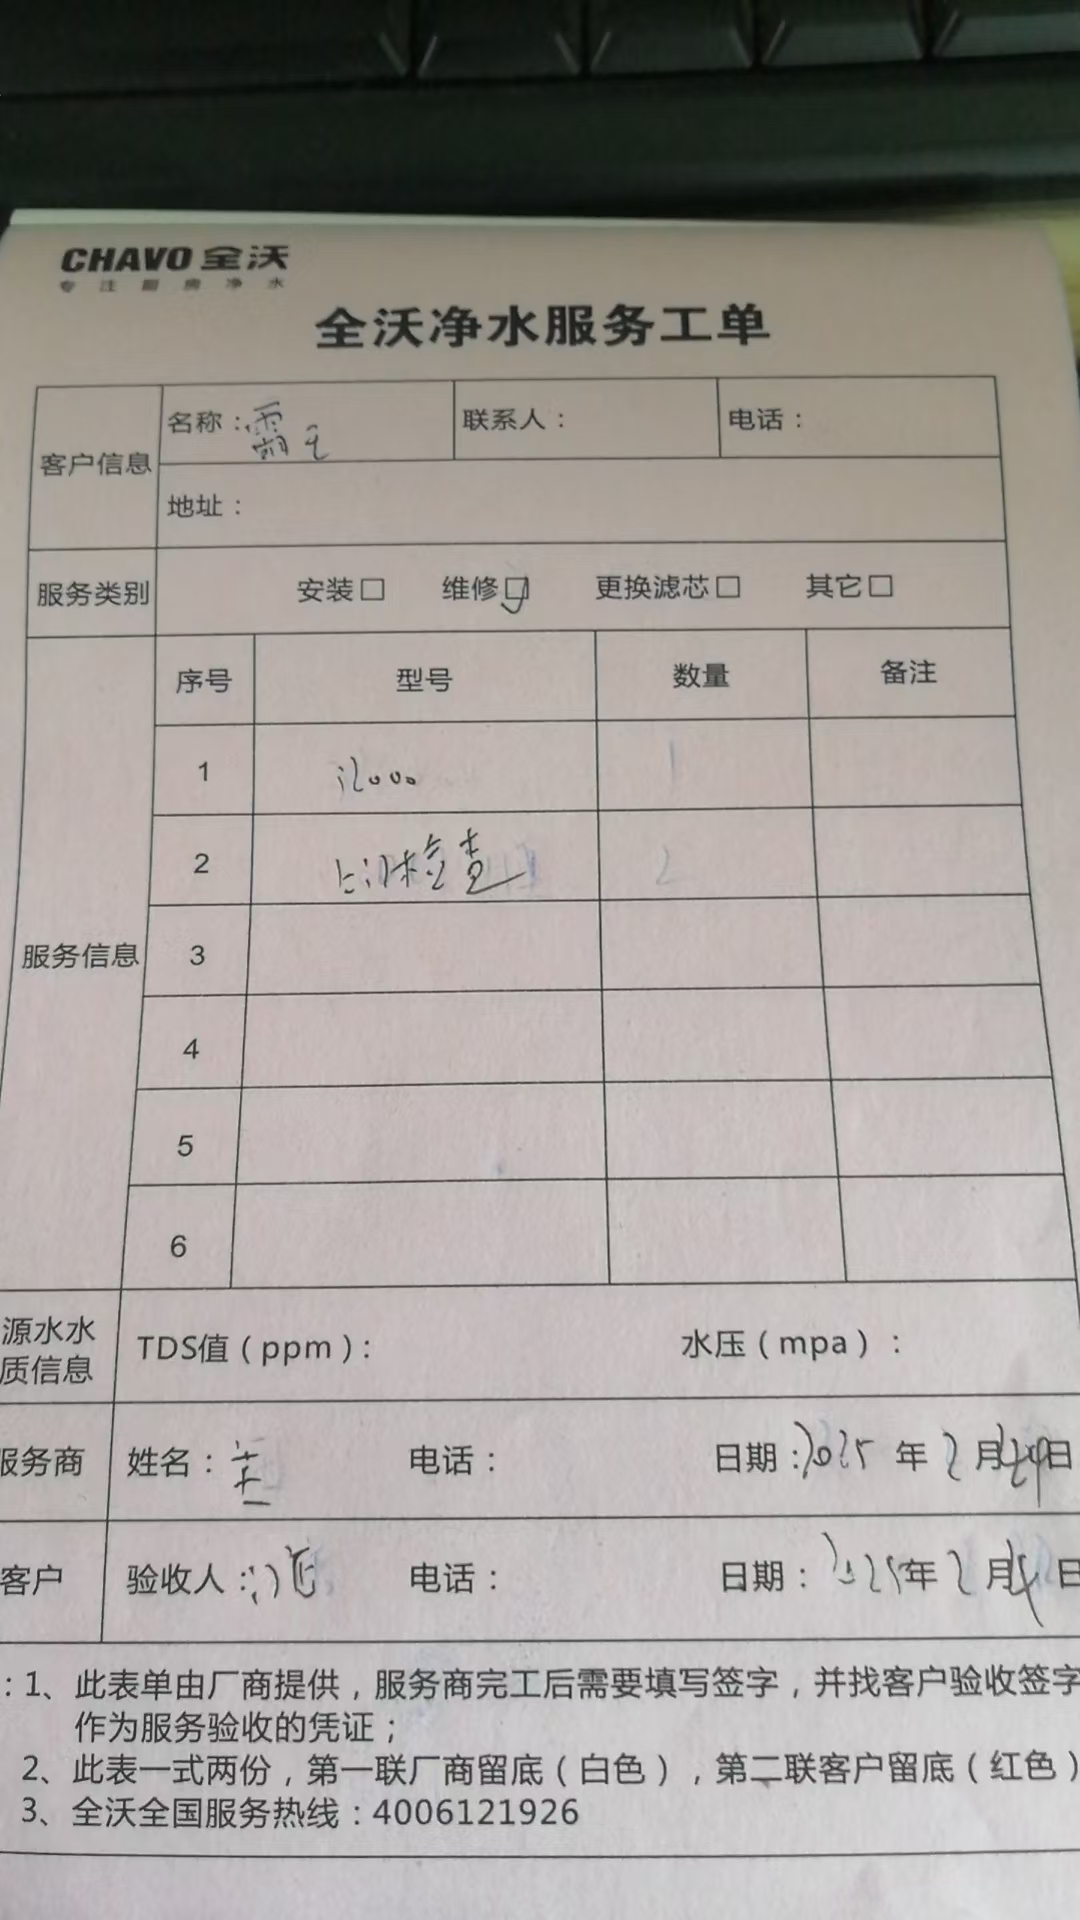 CHAVO 全沃
专注厨房净水
全沃净水服务工单
客户信息
名称：霸王 联系人： 电话：
地址：
服务类别 安装□ 维修□ 更换滤芯□ 其它□
服务信息
序号 型号 数量 备注
1 1
2 上门检查 2
3
4
5
6
源水水质信息 TDS值（ppm）： 水压（mpa）：
服务商 姓名： 电话： 日期：2025年2月 日
客户 验收人： 电话： 日期：2025年2月 日
：1、此表单由厂商提供，服务商完工后需要填写签字，并找客户验收签字
作为服务验收的凭证；
2、此表一式两份，第一联厂商留底（白色），第二联客户留底（红色）
3、全沃全国服务热线：4006121926